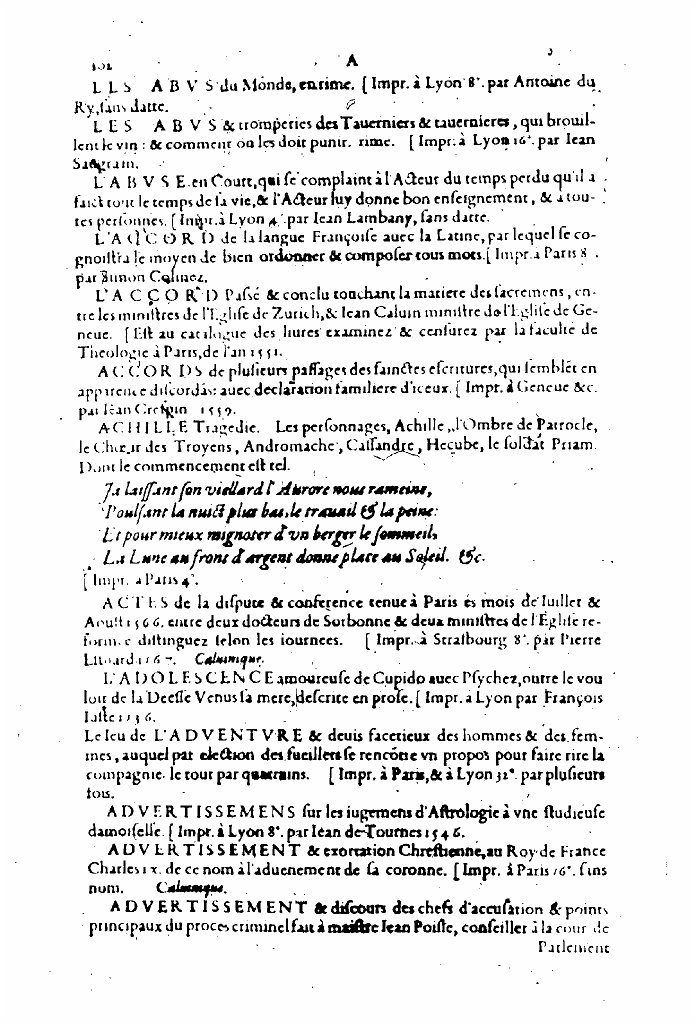 102 A
LES ABVS du Monde, en rime. [Impr. à Lyon 8°. par Antoine du
Ry, sans datte.
LES ABVS & tromperies des Tauerniers & tauernieres, qui brouil-
lent le vin: & comment on les doit punir. rime. [Impr. à Lyon 16°. par Iean
Saugrain.
L'ABVSE en Court, qui se complaint à l'Acteur du temps perdu qu'il a
faict tout le temps de sa vie, & l'Acteur luy donne bon enseignement, & à tou-
tes personnes. [Impr. à Lyon 4°. par Iean Lambany, sans datte.
L'ACCORD de la langue Françoise auec la Latine, par lequel se co-
gnoistra le moyen de bien ordonner & composer tous mots. [Impr. à Paris 8°.
par Simon Colinez.
L'ACCORD Passé & conclu touchant la matiere des sacremens, en-
tre les ministres de l'Eglise de Zurich, & Iean Caluin ministre de l'Eglise de Ge-
neue. [Est au catalogue des liures examinez & censurez par la faculté de
Theologie à Paris, de l'an 1551.
ACCORDS de plusieurs passages des sainctes escritures, qui semblēt en
apparence discordās: auec declaration familiere d'iceux. [Impr. à Geneue &c.
par Iean Crespin 1559.
ACHILLE Tragedie. Les personnages, Achille, l'Ombre de Patrocle,
le Chœur des Troyens, Andromache, Cassandre, Hecube, le soldat Priam.
Dont le commencement est tel.
Ja laissant son viellard l'Aurore nous rameine,
Poulsant la nuict plus bas, le trauail & la peine:
Et pour mieux mignoter d'vn berger le sommeil,
La Lune au front d'argent donne place au Soleil. &c.
[Impr. à Paris 4°.
ACTES de la dispute & conference tenue à Paris és mois de Iuillet &
Aoust 1566. entre deux docteurs de Sorbonne & deux ministres de l'Eglise re-
formee distinguez selon les iournees. [Impr. à Strasbourg 8°. par Pierre
Estiard 1567. Caluinique.
L'ADOLESCENCE amoureuse de Cupido auec Psychez, outre le vou
loir de la Deesse Venus sa mere, descrite en prose. [Impr. à Lyon par François
Iuste 1536.
Le Ieu de L'ADVENTVRE & deuis facetieux des hommes & des fem-
mes, auquel par election des fueillets se rencōtre vn propos pour faire rire la
compagnie. le tout par quatrains. [Impr. à Paris, & à Lyon 32°. par plusieurs
fois.
ADVERTISSEMENS sur les iugemens d'Astrologie à vne studieuse
damoiselle. [Impr. à Lyon 8°. par Iean de Tournes 1546.
ADVERTISSEMENT & exortation Chrestienne, au Roy de France
Charles ix. de ce nom à l'aduenement de sa coronne. [Impr. à Paris 16°. sans
nom. Caluinique.
ADVERTISSEMENT & discours des chefs d'accusation & points
principaux du proces criminel fait à maistre Iean Poisle, conseiller à la cour de
Parlement